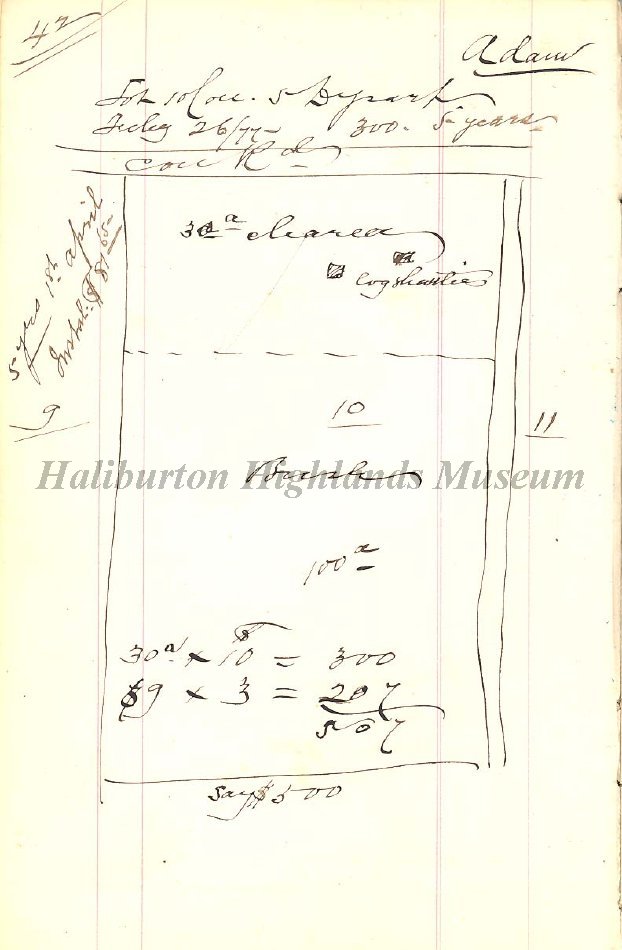 42
Adam
Lot 10 Con. 5 Dysart
Feby 26/77 300. 5 years
Con Rd
30a cleared
log shanties
5 yrs 1st April
Instal: $81.65
9
10
11
Haliburton Highlands Museum
Bush
100a
30a x $10 = 300
69 x 3 = 207
507
say $500